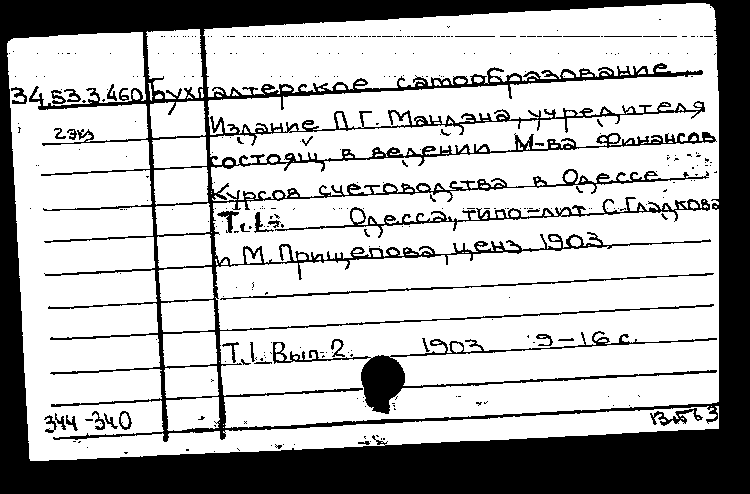 34.53.3.460 Бухгалтерское самообразование.
2 экз Издание П.Г. Мандэна, учредителя
состоящ. в ведении М-ва Финансов
Курсов счетоводства в Одессе
Т. 1- Одесса, типо-лит. С. Гладкова
и М. Прищепова, ценз. 1903.
Т.1. Вып. 2. 1903 9-16 с.
344-340